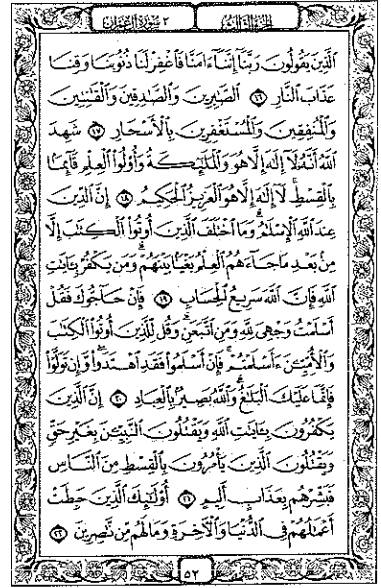 الجزء الثالث
سورة آل عمران
ٱلَّذِينَ يَقُولُونَ رَبَّنَآ إِنَّنَآ ءَامَنَّا فَٱغْفِرْ لَنَا ذُنُوبَنَا وَقِنَا
عَذَابَ ٱلنَّارِ ١٦ ٱلصَّٰبِرِينَ وَٱلصَّٰدِقِينَ وَٱلْقَٰنِتِينَ
وَٱلْمُنفِقِينَ وَٱلْمُسْتَغْفِرِينَ بِٱلْأَسْحَارِ ١٧ شَهِدَ
ٱللَّهُ أَنَّهُۥ لَآ إِلَٰهَ إِلَّا هُوَ وَٱلْمَلَٰٓئِكَةُ وَأُو۟لُوا۟ ٱلْعِلْمِ قَآئِمًۢا
بِٱلْقِسْطِ ۚ لَآ إِلَٰهَ إِلَّا هُوَ ٱلْعَزِيزُ ٱلْحَكِيمُ ١٨ إِنَّ ٱلدِّينَ
عِندَ ٱللَّهِ ٱلْإِسْلَٰمُ ۗ وَمَا ٱخْتَلَفَ ٱلَّذِينَ أُوتُوا۟ ٱلْكِتَٰبَ إِلَّا
مِنۢ بَعْدِ مَا جَآءَهُمُ ٱلْعِلْمُ بَغْيًۢا بَيْنَهُمْ ۗ وَمَن يَكْفُرْ بِـَٔايَٰتِ
ٱللَّهِ فَإِنَّ ٱللَّهَ سَرِيعُ ٱلْحِسَابِ ١٩ فَإِنْ حَآجُّوكَ فَقُلْ
أَسْلَمْتُ وَجْهِىَ لِلَّهِ وَمَنِ ٱتَّبَعَنِ ۗ وَقُل لِّلَّذِينَ أُوتُوا۟ ٱلْكِتَٰبَ
وَٱلْأُمِّيِّـۧنَ ءَأَسْلَمْتُمْ ۚ فَإِنْ أَسْلَمُوا۟ فَقَدِ ٱهْتَدَوا۟ ۖ وَّإِن تَوَلَّوْا۟
فَإِنَّمَا عَلَيْكَ ٱلْبَلَٰغُ ۗ وَٱللَّهُ بَصِيرٌۢ بِٱلْعِبَادِ ٢٠ إِنَّ ٱلَّذِينَ
يَكْفُرُونَ بِـَٔايَٰتِ ٱللَّهِ وَيَقْتُلُونَ ٱلنَّبِيِّـۧنَ بِغَيْرِ حَقٍّ
وَيَقْتُلُونَ ٱلَّذِينَ يَأْمُرُونَ بِٱلْقِسْطِ مِنَ ٱلنَّاسِ
فَبَشِّرْهُم بِعَذَابٍ أَلِيمٍ ٢١ أُو۟لَٰٓئِكَ ٱلَّذِينَ حَبِطَتْ
أَعْمَٰلُهُمْ فِى ٱلدُّنْيَا وَٱلْـَٔاخِرَةِ وَمَا لَهُم مِّن نَّٰصِرِينَ ٢٢
٥٢